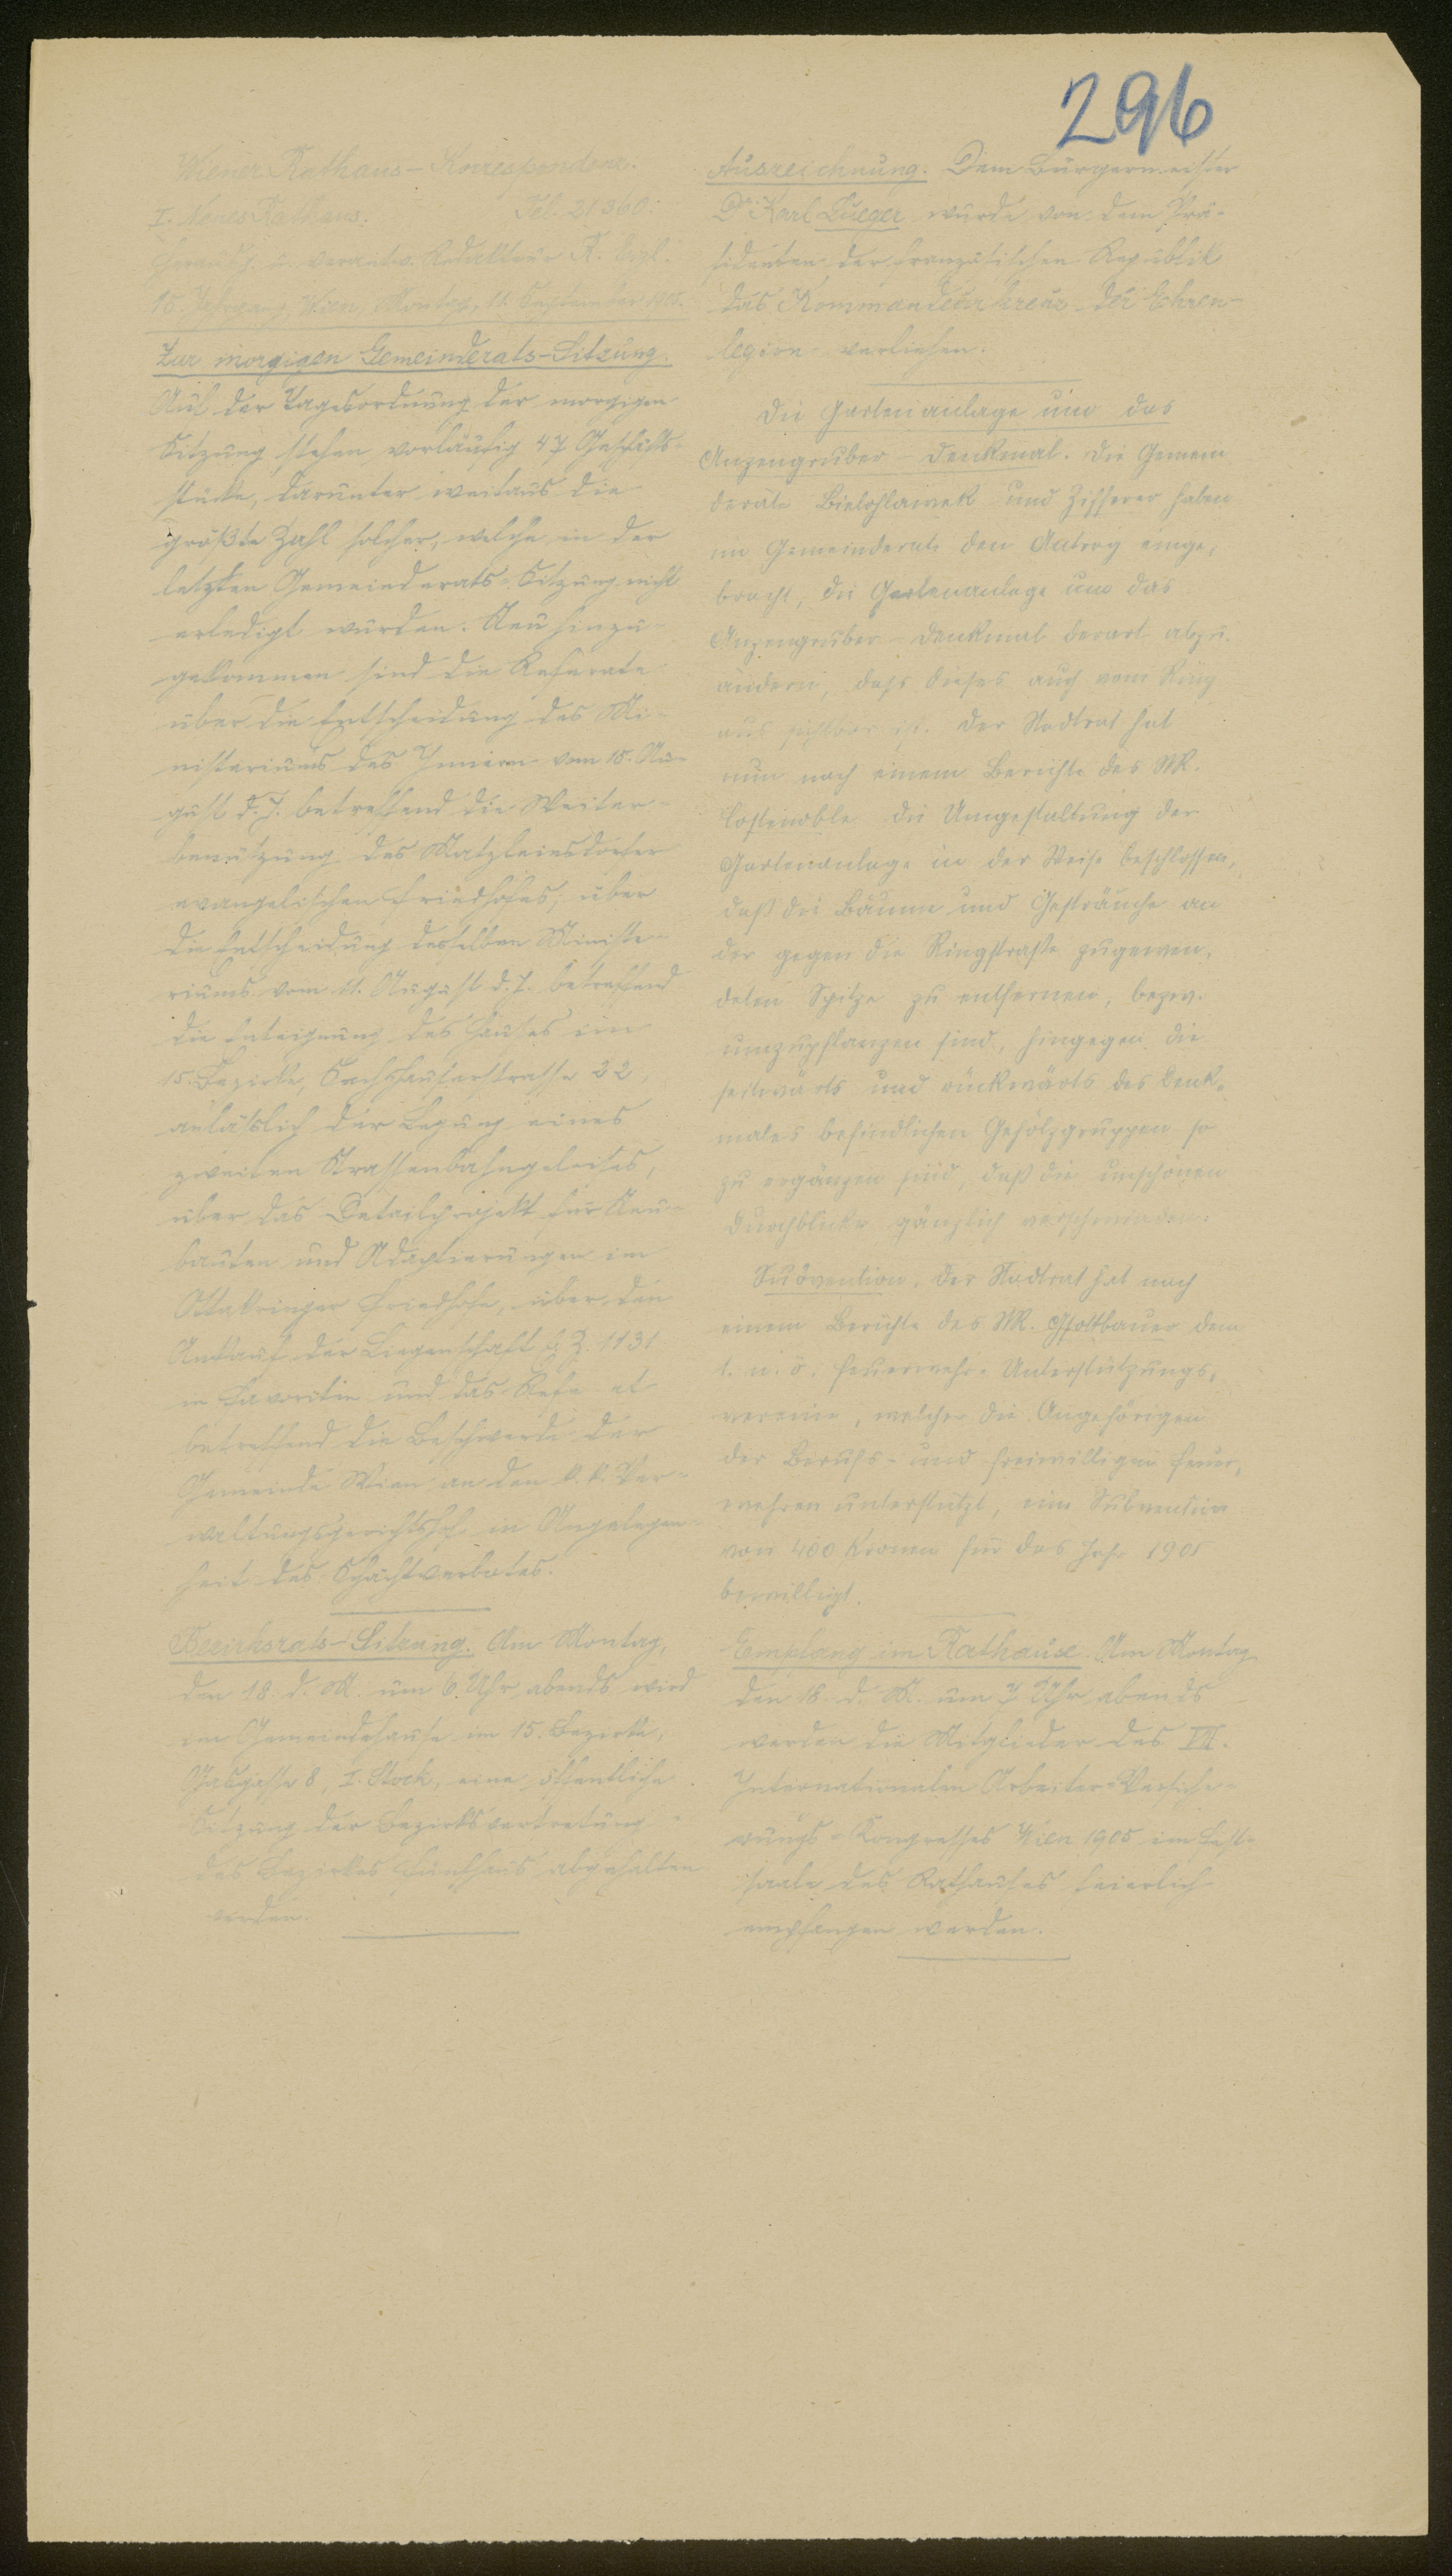 296
Wiener Rathaus-Korrespondenz.
I. Neues Rathaus. Tel. 21360.
Herausg. u. verantw. Redakteur R.
15. Jahrgang, Wien, Montag, 11. September 1905.
Zur morgigen Gemeinderats-Sitzung.
Auf der Tagesordnung der morgigen
Sitzung stehen vorläufig 47 Geschäfts-
stücke, darunter weitaus die
größte Zahl solcher, welche in der
letzten Gemeinderats-Sitzung nicht
erledigt wurden. Neu hinzu-
gekommen sind die Referate
über die Entscheidung des Mi-
nisteriums des Innern vom 15. Au-
gust d. J. betreffend die Weiter-
benützung des Matzleinsdorfer
evangelischen Friedhofes, über
die Entscheidung desselben Ministe-
riums vom 11. August d. J. betreffend
die Enteignung des Hauses im
15. Bezirke, Sechshauserstrasse 22,
anläßlich der Legung eines
zweiten Strassenbahngeleises,
über das Detailprojekt für Neu-
bauten und Adaptierungen im
Ottakringer Friedhofe, über den
Ankauf der Liegenschaft E. Z. 1131
in Favoriten und das Referat
betreffend die Beschwerde der
Gemeinde Wien an den k. k. Ver-
waltungsgerichtshof in Angelegen-
heit des Schächtverbotes.
Bezirksrats-Sitzung. Am Montag,
den 18. d. M. um 6 Uhr abends wird
im Gemeindehause im 15. Bezirke,
Gasgasse 8, I. Stock, eine öffentliche
Sitzung der Bezirksvertretung
des Bezirkes Fünfhaus abgehalten
werden.
Auszeichnung. Dem Bürgermeister
Dr. Karl Lueger wurde von dem Prä-
sidenten der französischen Republik
das Kommandeurkreuz der Ehren-
legion verliehen.
Die Gartenanlage um das
Anzengruber-Denkmal. Die Gemein
deräte Bielohlawek und Zifferer haben
im Gemeinderate den Antrag einge-
bracht, die Gartenanlage um das
Anzengruber-Denkmal derart abzu-
ändern, daß dieses auch vom Ring
aus sichtbar ist. Der Stadtrat hat
nun nach einem Berichte des StR.
Costenoble die Umgestaltung der
Gartenanlage in der Weise beschlossen,
daß die Bäume und Gesträuche an
der gegen die Ringstraße zugewen-
deten Spitze zu entfernen, bezw.
umzupflanzen sind, hingegen die
seitwärts und rückwärts des Denk-
males befindlichen Gehölzgruppen so
zu ergänzen sind, daß die unschönen
Durchblicke gänzlich verschwinden.
Subvention. Der Stadtrat hat nach
einem Berichte des StR. Gsottbauer dem
1. n. ö. Feuerwehr-Unterstützungs-
vereine, welcher die Angehörigen
der Berufs- und freiwilligen Feuer-
wehren unterstützt, eine Subvention
von 400 Kronen für das Jahr 1905
bewilligt.
Empfang im Rathause. Am Montag
den 18. d. M. um 7 Uhr abends
werden die Mitglieder des VII.
Internationalen Arbeiter-Versiche-
rungs-Kongresses Wien 1905 im Fest-
saale des Rathauses feierlich
empfangen werden.